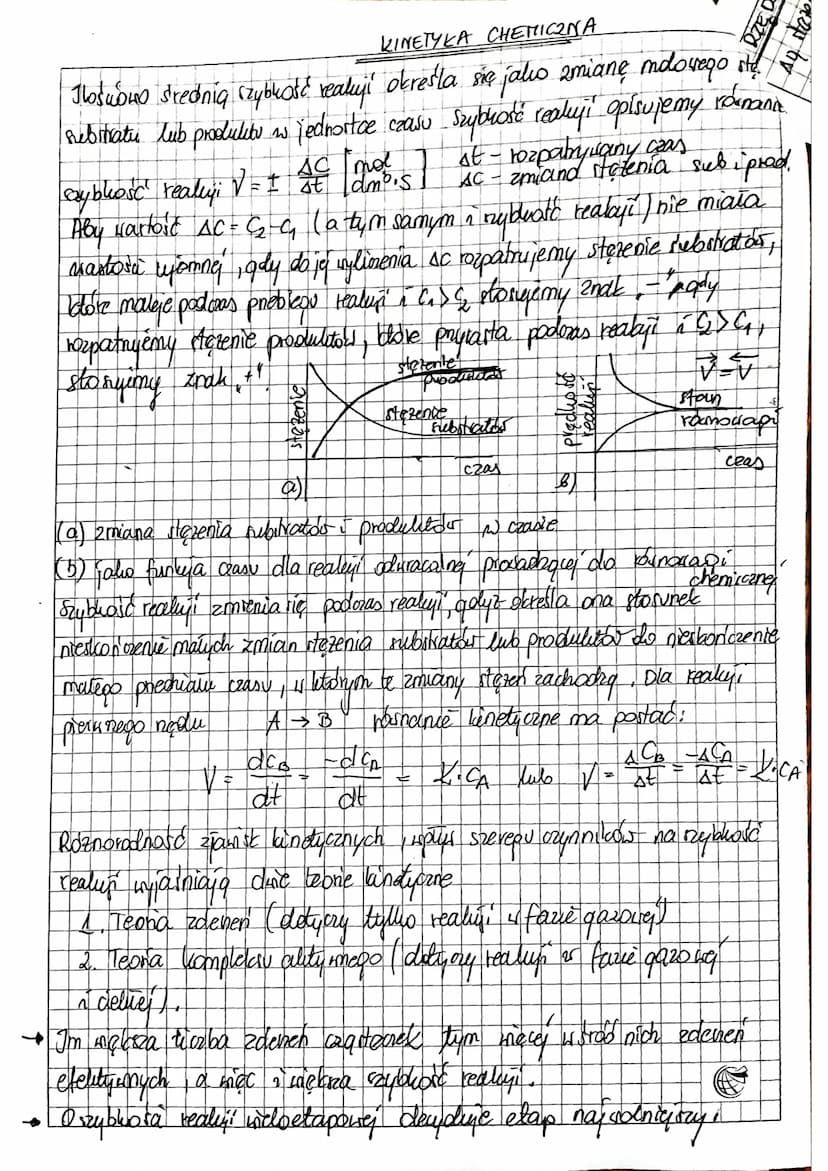 KINETYKA CHEMICZNA
Ilościowo średnią szybkość reakcji określa się jako zmianę molowego stę.
substratu lub produktu w jednostce czasu. Szybkość reakcji opisujemy równanie
szybkość reakcji V = ± ΔC/Δt [mol/dm³·s] Δt – rozpatrywany czas
ΔC – zmiana stężenia sub i prod.
Aby wartość ΔC = C₂-C₁ (a tym samym i szybkość reakcji) nie miała
wartości ujemnej, gdy do jej wyliczenia ΔC rozpatrujemy stężenie substratów,
które maleje podczas przebiegu reakcji i C₁ > C₂ stosujemy znak „-", gdy
rozpatrujemy stężenie produktów, które przyrasta podczas reakcji i C₂ > C₁,
stosujemy znak „+".
stężenie
stężenie produktów
stężenie substratów
czas
a)
prędkość reakcji
V = V
stan
równowagi
czas
b)
(a) zmiana stężenia substratów i produktów w czasie
(b) jako funkcja czasu dla reakcji odwracalnej prowadzącej do równowagi
chemicznej
Szybkość reakcji zmienia się podczas reakcji, gdyż określa ona stosunek
nieskończenie małych zmian stężenia substratów lub produktów do nieskończenie
małego przedziału czasu, w którym te zmiany stężeń zachodzą. Dla reakcji
pierwszego rzędu A → B równanie kinetyczne ma postać:
V = dC_B/dt = -dC_A/dt = K·C_A lub V = ΔC_B/Δt = -ΔC_A/Δt = K·C_A
Różnorodność zjawisk kinetycznych, wpływ szeregu czynników na szybkość
reakcji wyjaśniają dwie teorie kinetyczne
1. Teoria zderzeń (dotyczy tylko reakcji w fazie gazowej)
2. Teoria kompleksu aktywnego (dotyczy reakcji w fazie gazowej
i ciekłej).
→ Im większa liczba zderzeń cząsteczek tym więcej wśród nich zderzeń
efektywnych, a więc i większa szybkość reakcji.
→ O szybkości reakcji wieloetapowej decyduje etap najwolniejszy.